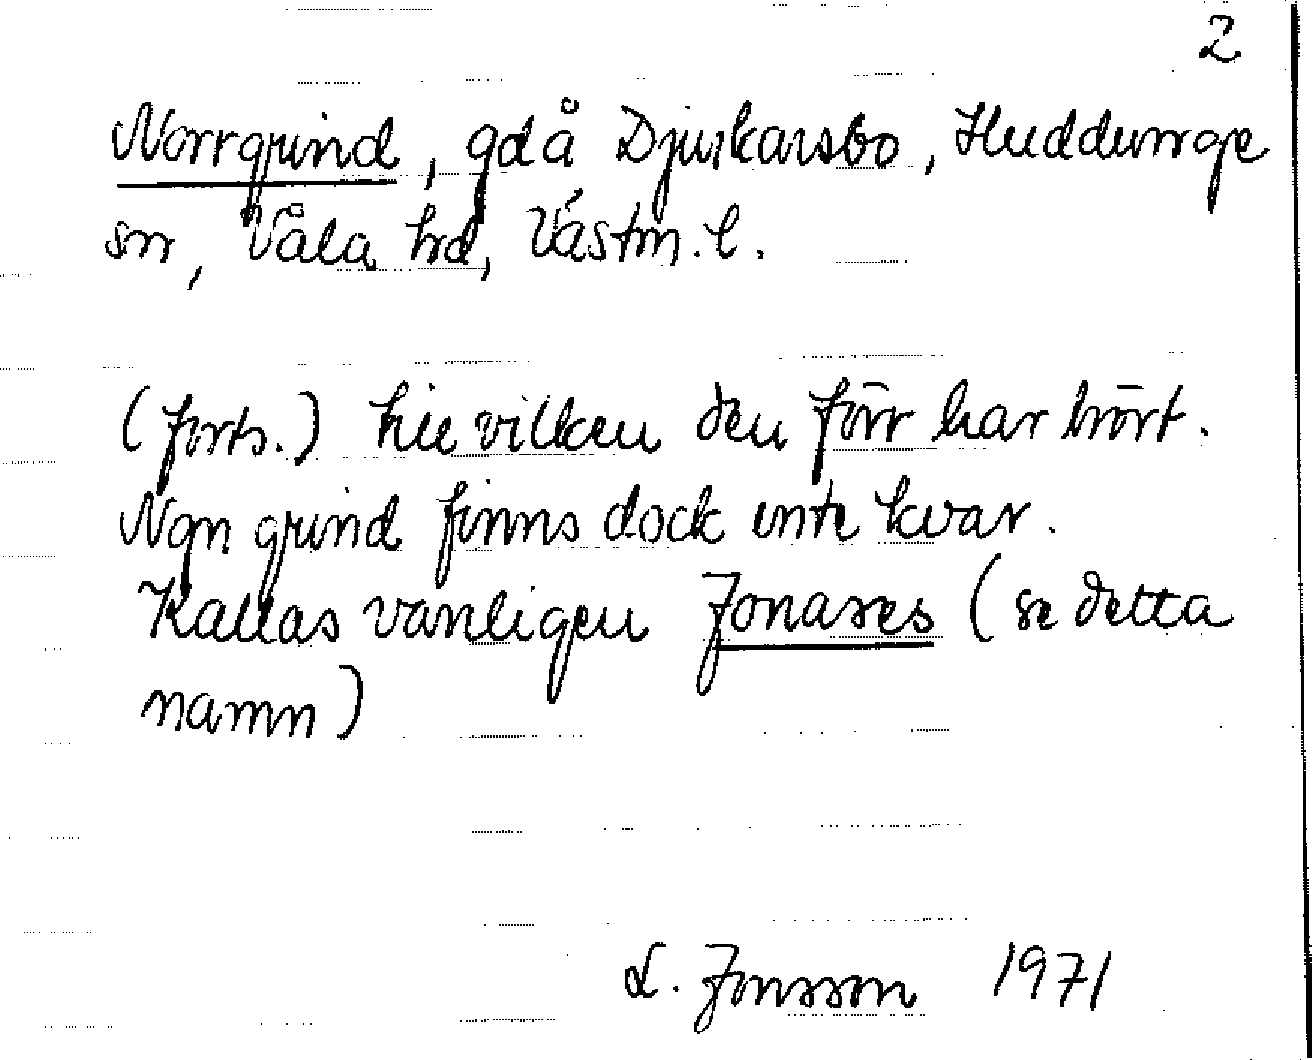 2
Norrgrind, gd å Djurkarsbo, Huddunge
sn, Våla hd, Västm. l.
(forts.) till vilken den förr har hört.
Ngn grind finns dock inte kvar.
Kallas vanligen Jonases (se detta
namn)
L. Jonsson 1971